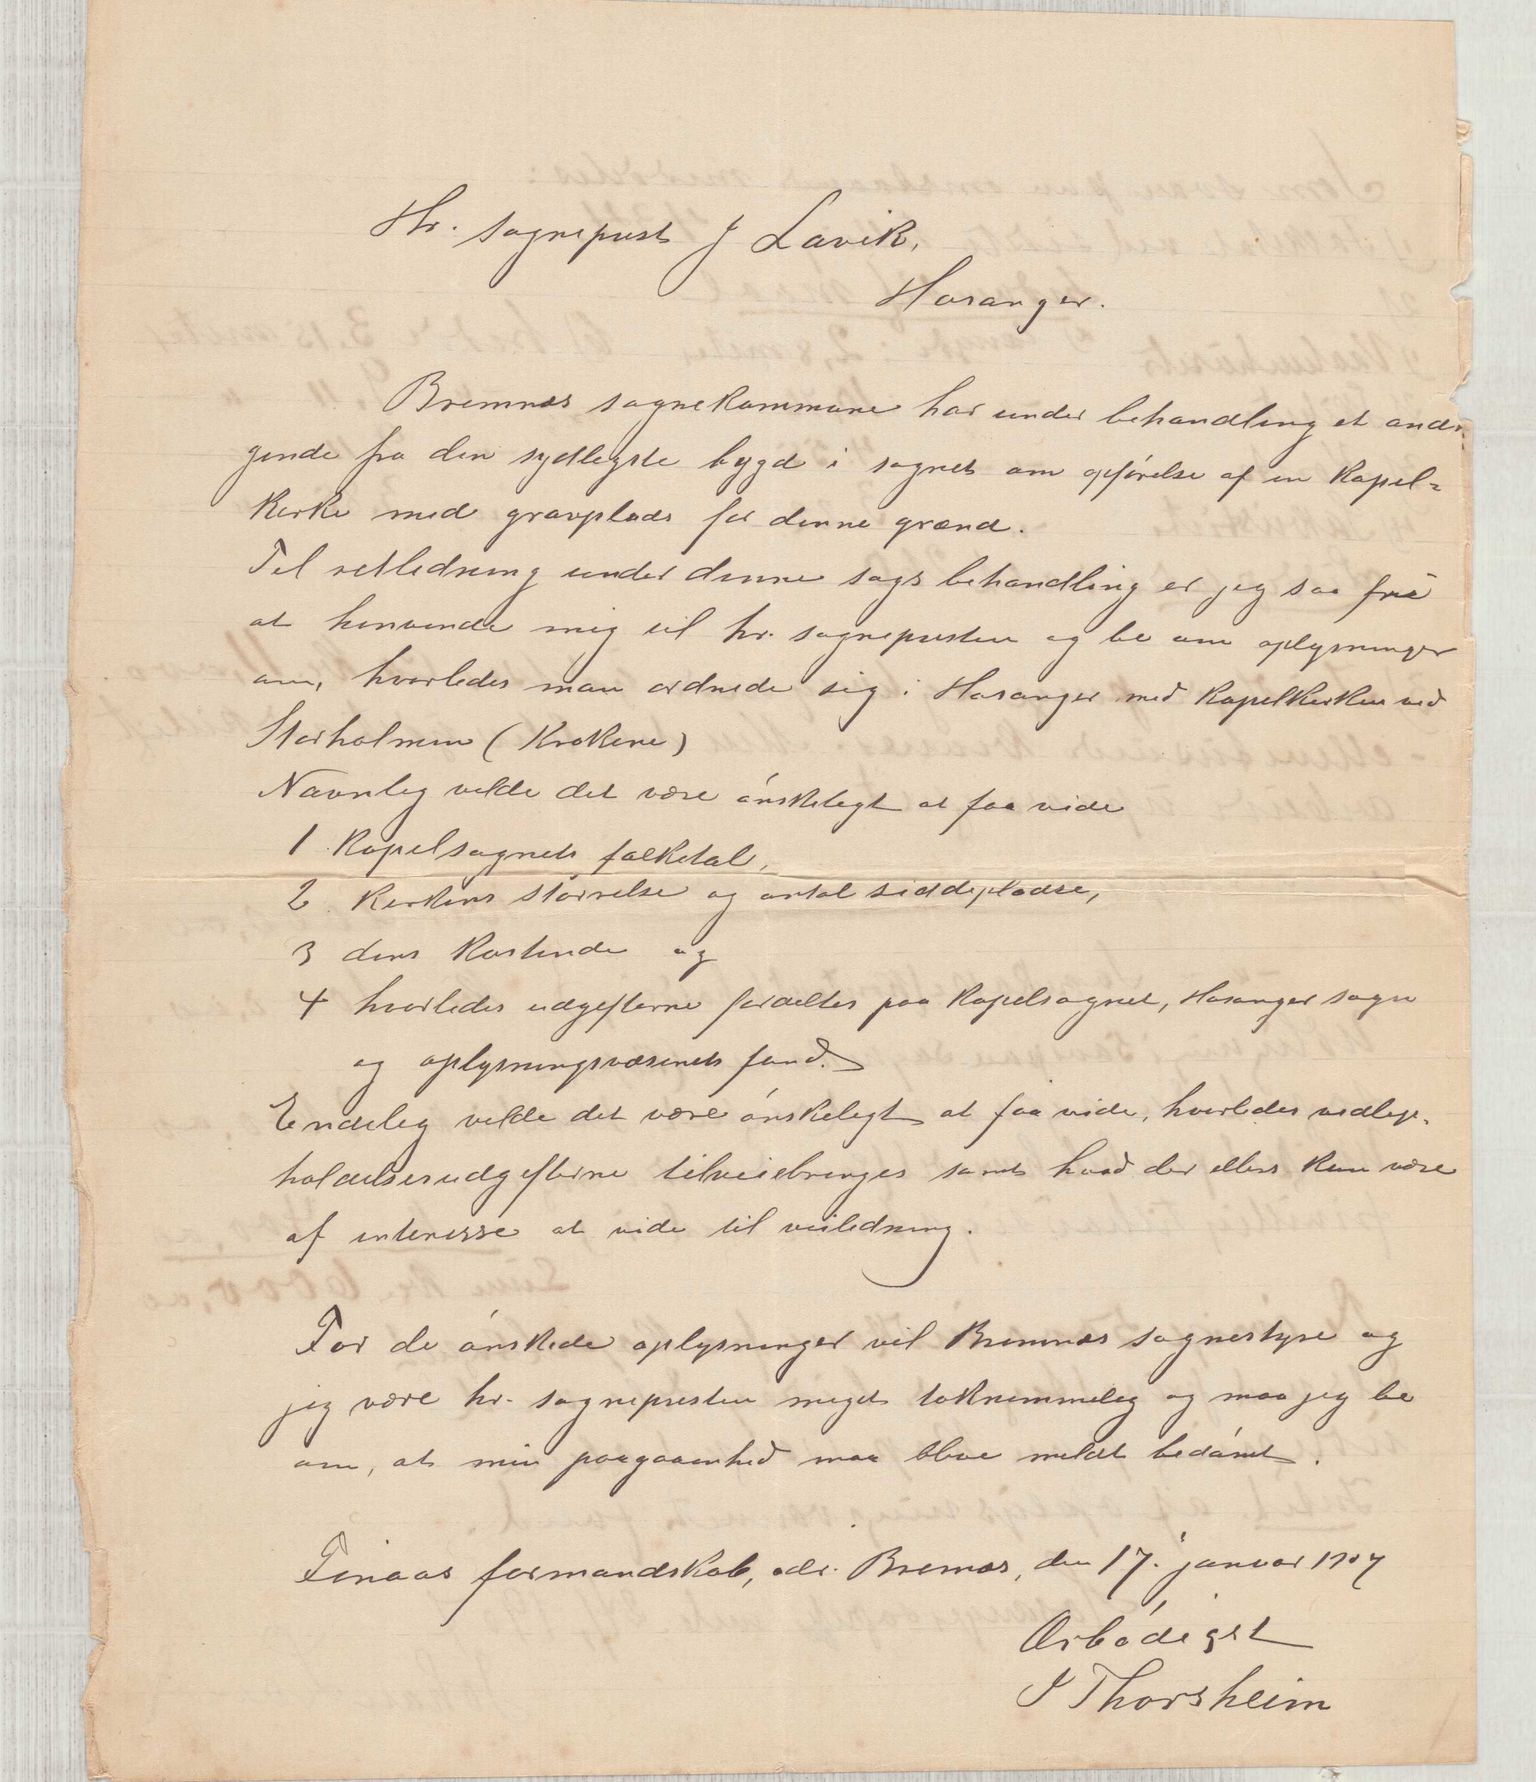 Hr. sogneprest J Lavik,
Hosanger.
Bremnæs sognekommune har under behandling et andra-
gende fra den sydligste bygd i sognet om opførelse af en kapel-
kirke med gravplads for denne grænd.
Til retledning under denne sags behandling er jeg saa fri
at henvende mig til hr. sognepresten og be om oplysninger
om, hvorledes man ordnede sig i Hosanger med kapelkirken ved
Storholmen (Krokene)
Navnlig vilde det være ønskeligt at faa vide
1 Kapelsognets folketal,
2 Kirkens størrelse og antal siddepladse,
3 dens kostende og
4 hvorledes udgifterne fordeltes paa kapelsognet, Hosanger sogn
og oplysningsvæsenets fond.
Endelig vilde det være ønskeligt at faa vide, hvorledes vedlige-
holdelsesudgifterne tilveiebringes samt hvad der ellers kan være
af interesse at vide til veiledning.
For de ønskede oplysninger vil Bremnæs sognestyre og
jeg være hr. sognepresten meget taknemmelig og maa jeg be
om, at min paagaaenhed maa blive mildt bedømt.
Finaas formandskab, adr. Bremnæs, den 17. januar 1907
Ærbødigst
J Thorsheim